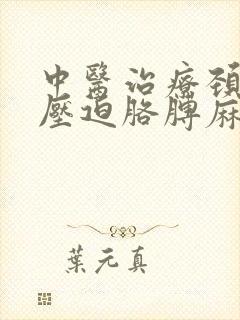 中醫治療頸
壓迫胳膊麻
葉元真